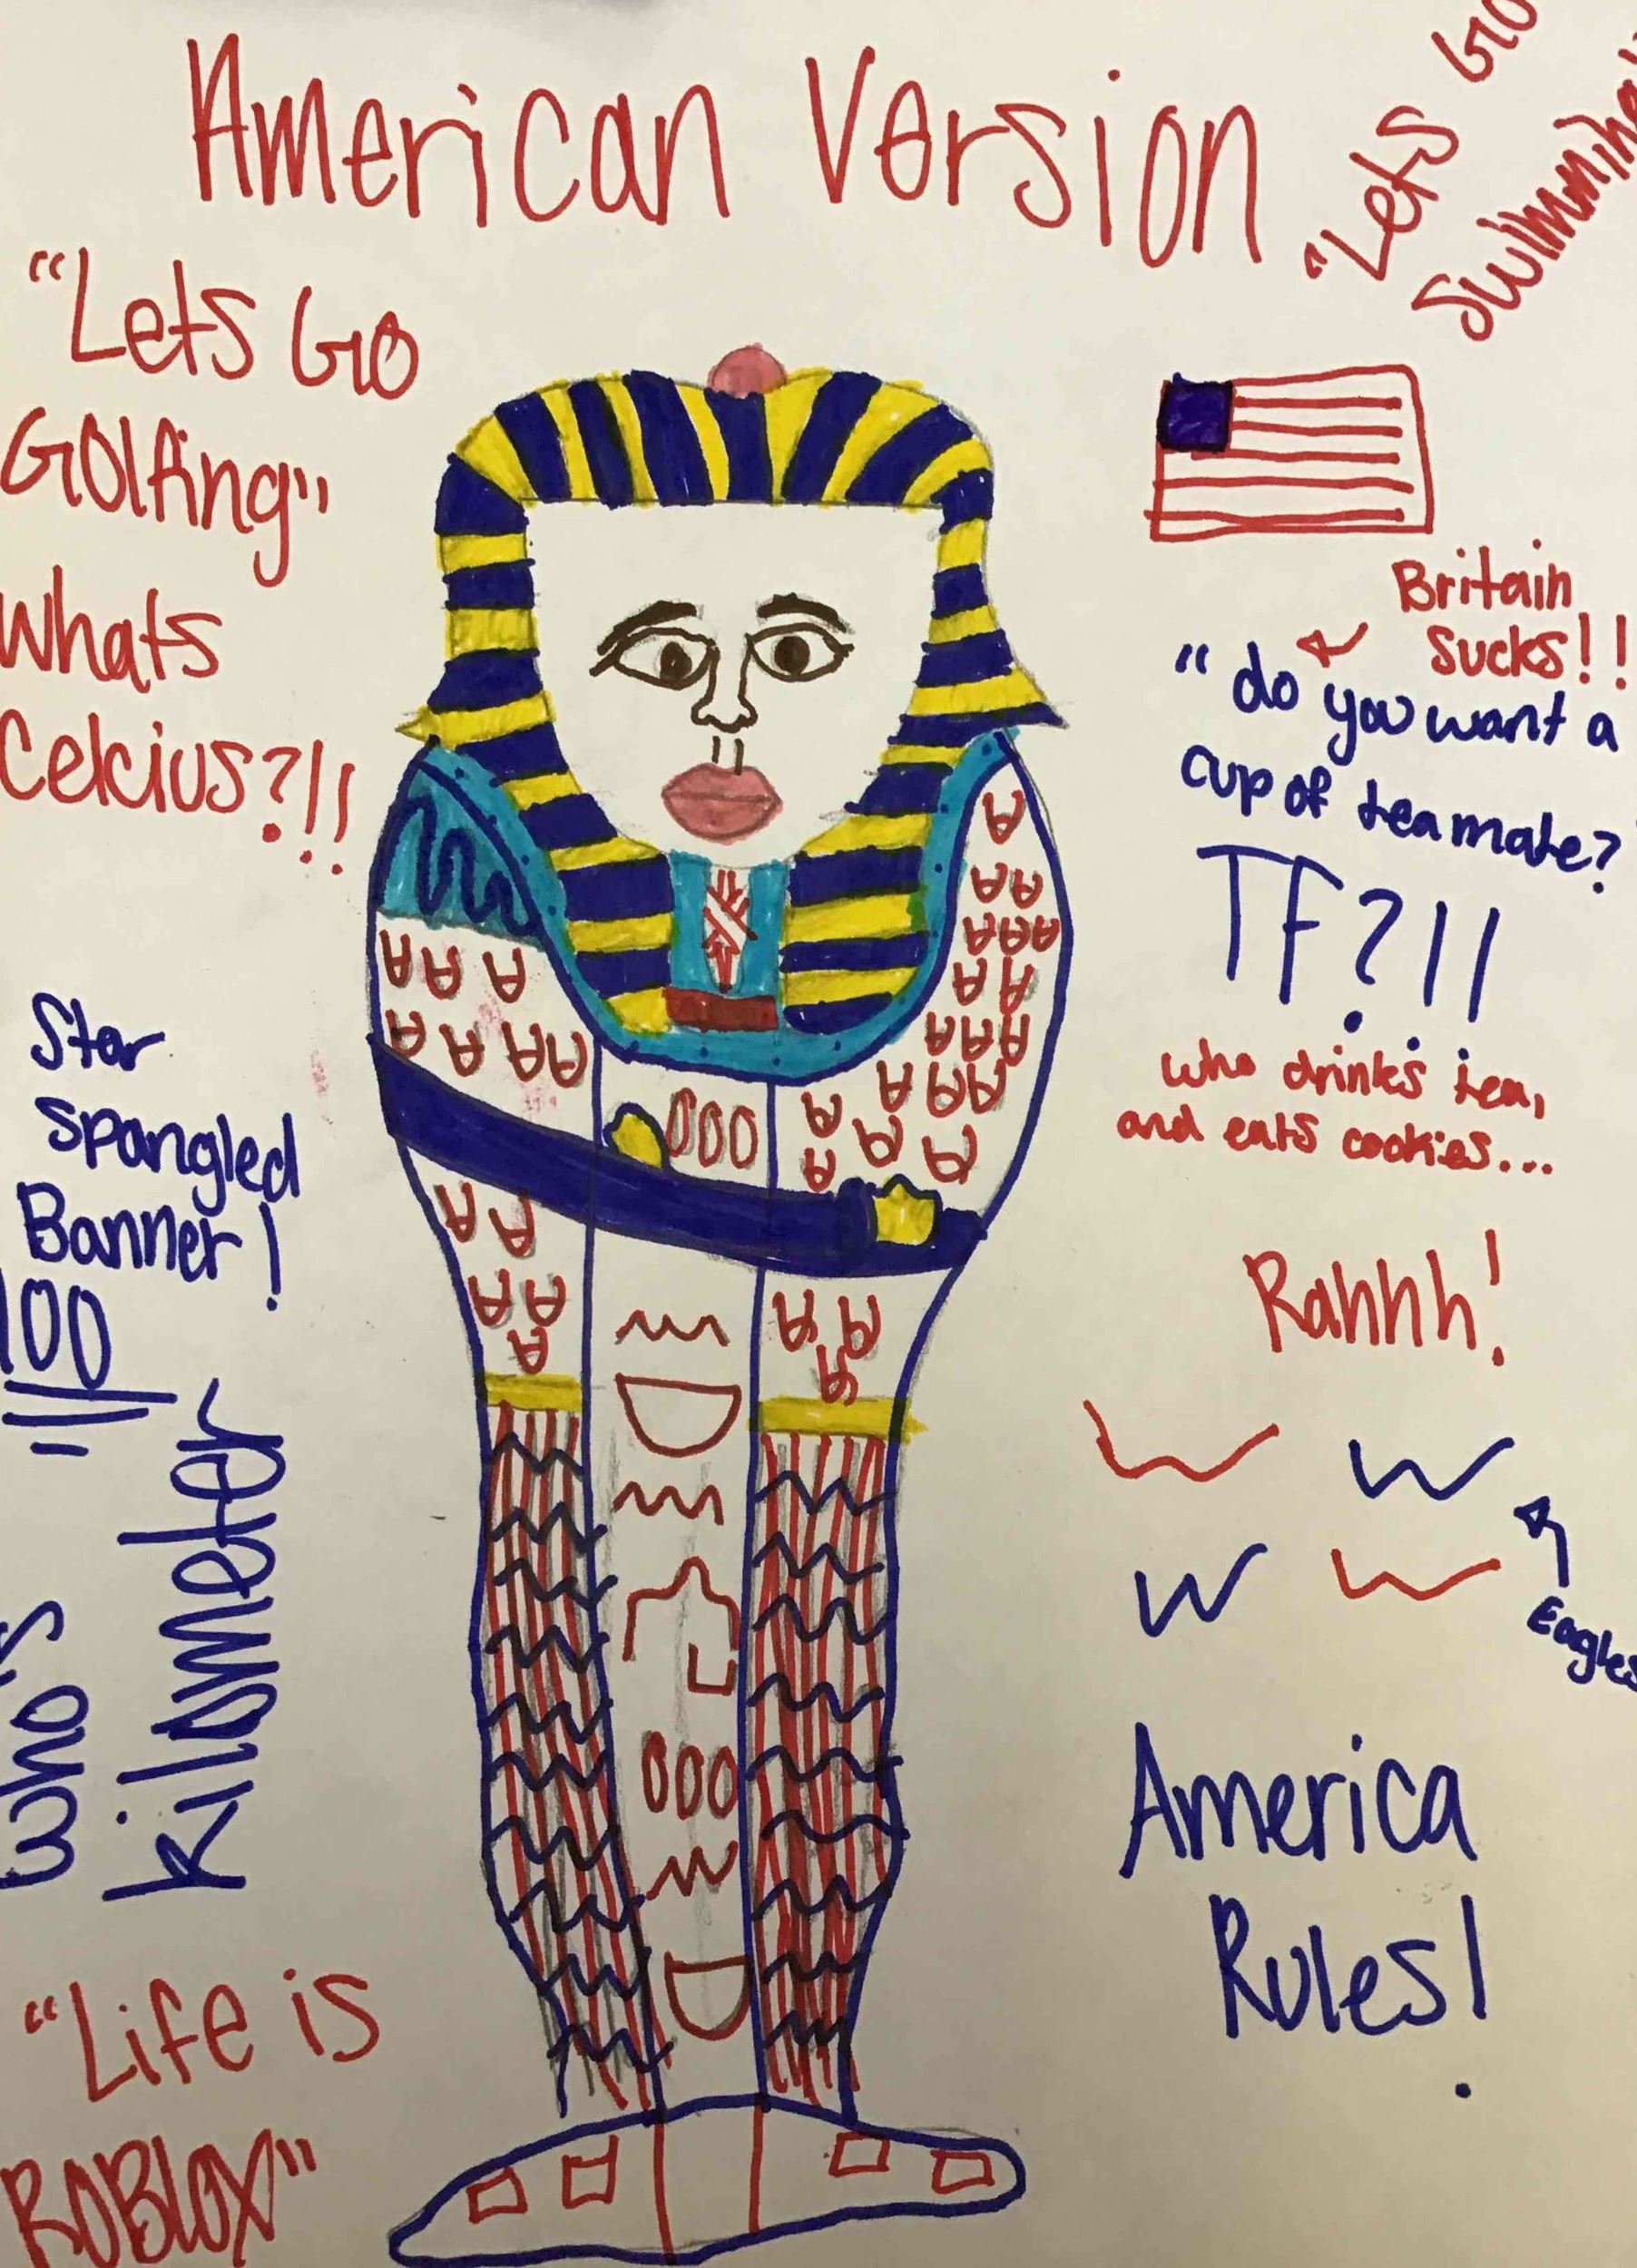 American Version
"Lets Go
Swimming
"Lets Go
Golfing"
Whats
Celcius?!!
Britain
sucks!!
"do you want a
cup of tea mate?"
TF?!!
who drinks tea,
and eats cookies...
Star
spangled
Banner!
100
Rahhh!
Eagles
who's
kilometer
America
Rules!
"Life is
ROBlOX"